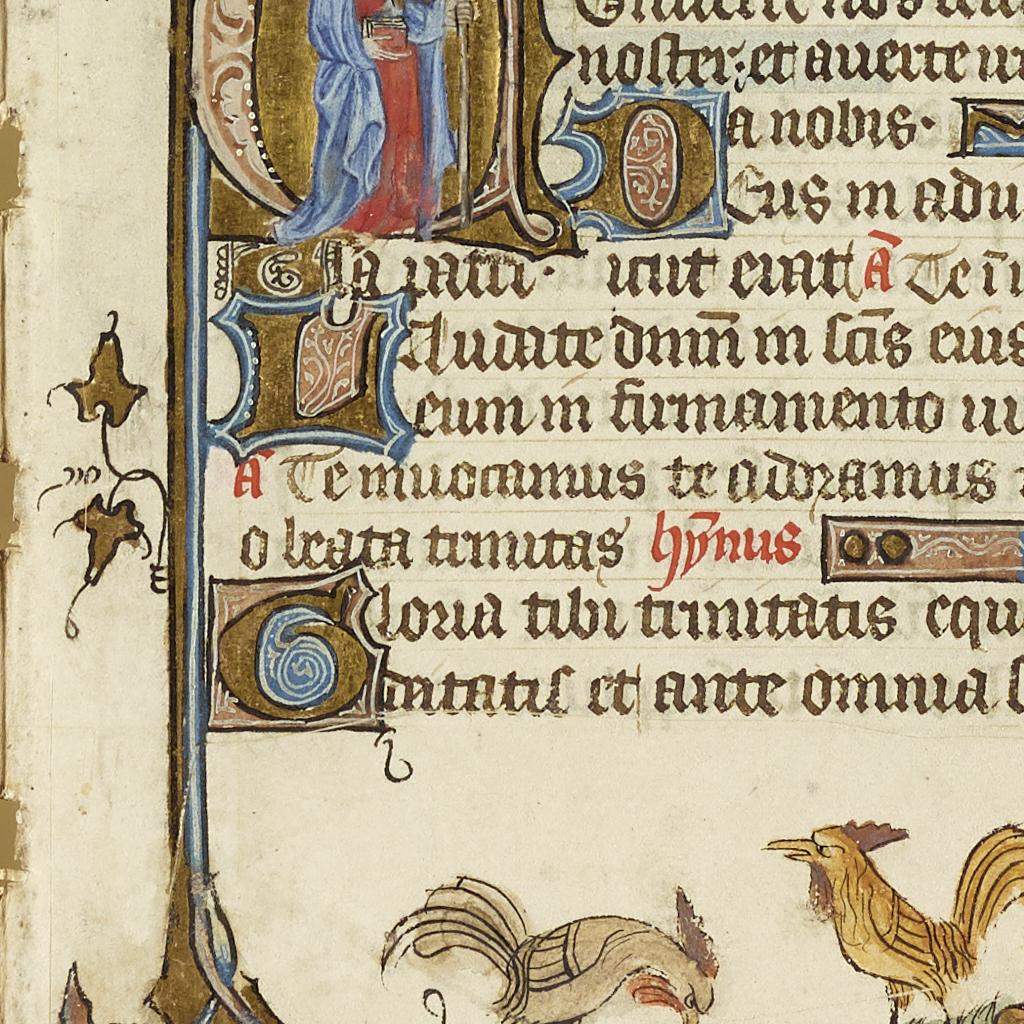 noster: et auerte
a nobis.
Deus in adiu
Gla patri. sicut erat A Te in
Laudate dnm in scis eius
eum in firmamento
A Te inuocamus te adoramus
o beata trinitas hymnus
Gloria tibi trinitatis equ
deitatis et ante omnia